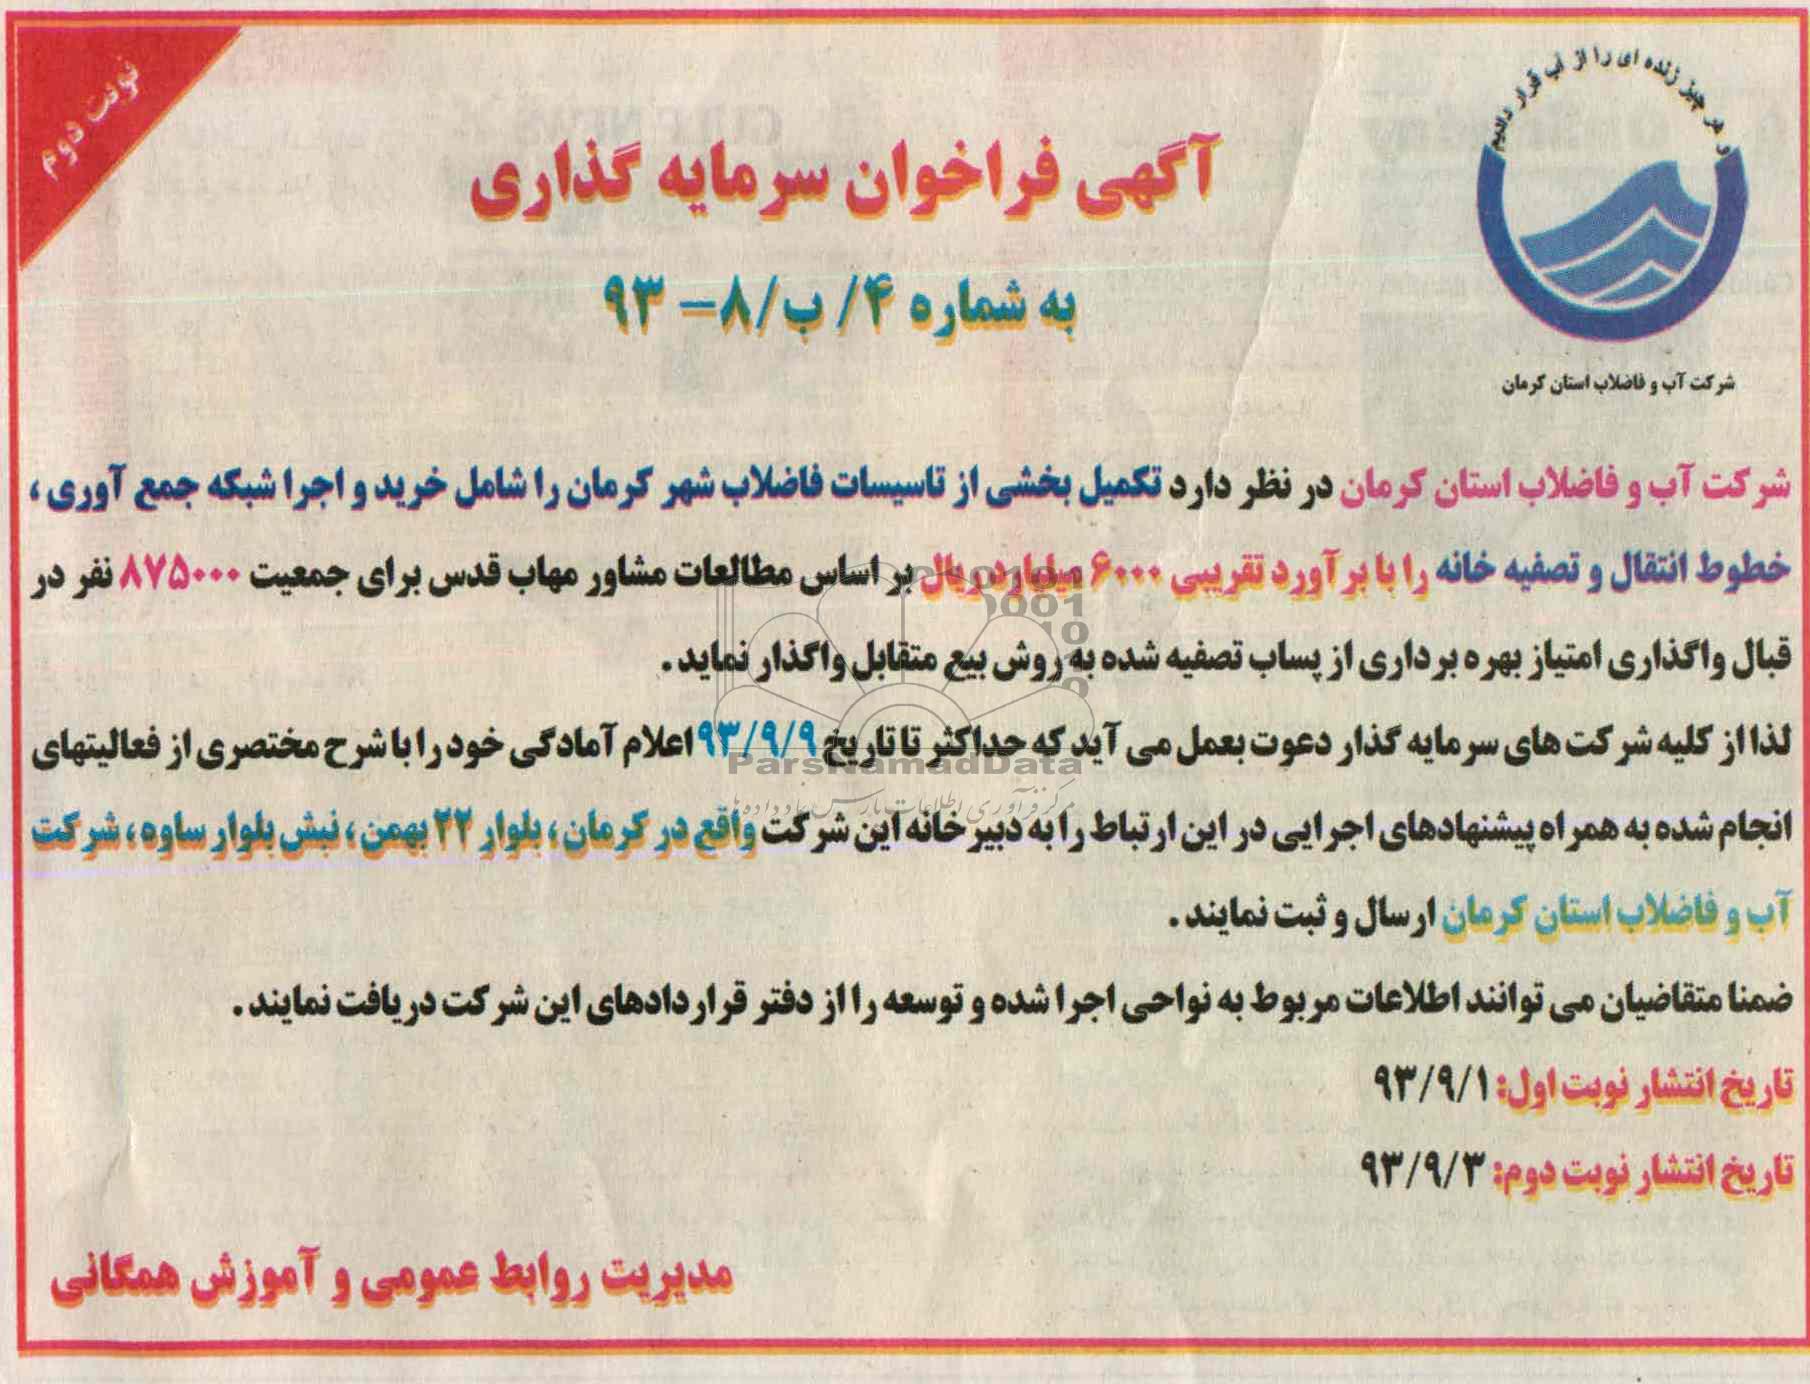 نوبت دوم
و هر چیز زنده ای را از آب قرار دادیم
آگهی فراخوان سرمایه گذاری
به شماره ۴/ ب/۸– ۹۳
شرکت آب و فاضلاب استان کرمان
شرکت آب و فاضلاب استان کرمان در نظر دارد تکمیل بخشی از تاسیسات فاضلاب شهر کرمان را شامل خرید و اجرا شبکه جمع آوری ،
خطوط انتقال و تصفیه خانه را با برآورد تقریبی ۶۰۰۰ میلیارد ریال بر اساس مطالعات مشاور مهاب قدس برای جمعیت ۸۷۵۰۰۰ نفر در
قبال واگذاری امتیاز بهره برداری از پساب تصفیه شده به روش بیع متقابل واگذار نماید .
لذا از کلیه شرکت های سرمایه گذار دعوت بعمل می آید که حداکثر تا تاریخ ۹۳/۹/۹ اعلام آمادگی خود را با شرح مختصری از فعالیتهای
انجام شده به همراه پیشنهادهای اجرایی در این ارتباط را به دبیرخانه این شرکت واقع در کرمان ، بلوار ۲۲ بهمن ، نبش بلوار ساوه ، شرکت
آب و فاضلاب استان کرمان ارسال و ثبت نمایند .
ضمنا متقاضیان می توانند اطلاعات مربوط به نواحی اجرا شده و توسعه را از دفتر قراردادهای این شرکت دریافت نمایند .
تاریخ انتشار نوبت اول: ۹۳/۹/۱
تاریخ انتشار نوبت دوم: ۹۳/۹/۳
مدیریت روابط عمومی و آموزش همگانی
ParsNamadData
مرکز فرآوری اطلاعات پارس نماد داده ها